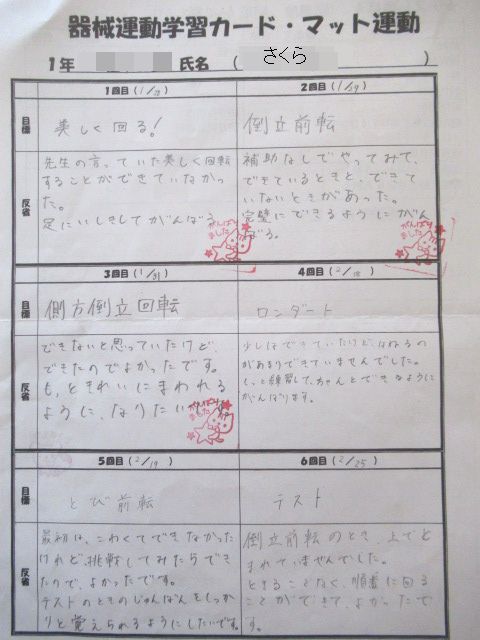 器械運動学習カード・マット運動
1年
氏名
(さくら)
1回目(1/28)
目標
美しく回る!
反省
先生の言っていた美しく回転
することができていなかっ
た。
足にいしきしてがんばろう
がんばりました
2回目(1/29)
倒立前転
補助なしでやってみて、
できているときと、できて
いないときがあった。
完璧にできるようにがん
ばる。
がんばりました
3回目(1/31)
目標
側方倒立回転
反省
できないと思っていたけど、
できたのでよかったです。
もっときれいにまわれる
ように、なりたいです
がんばりました
4回目(2/18)
ロンダート
少しはできていたけど、はねるの
があまりできていませんでした。
もっと練習して、ちゃんとできるように
がんばります。
5回目(2/19)
目標
とび前転
反省
最初は、こわくてできなかった
けれど、挑戦してみたらでき
たので、よかったです。
テストのときのじゅんばんをしっか
りと覚えられるようにしたいです。
6回目(2/25)
テスト
倒立前転のとき、上でと
まれていませんでした。
とまることなく、順番に回る
ことができて、よかったで
す。